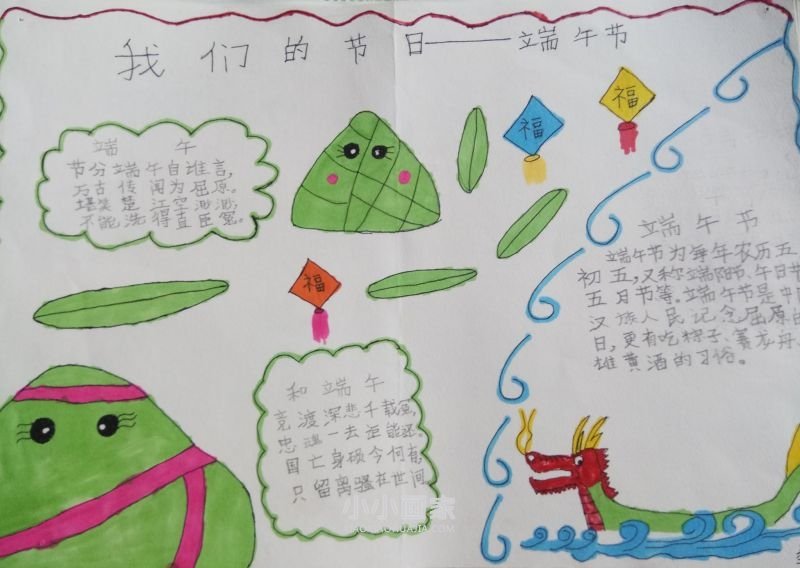 我们的节日——端午节
端 午
节分端午自谁言,
万古传闻为屈原。
堪笑楚江空渺渺,
不能洗得直臣冤。
福
福
福
端午节
端午节为每年农历五
初五,又称端阳节、午日节
五月节等。端午节是中
汉族人民记念屈原的
日,更有吃粽子、赛龙舟、
雄黄酒的习俗。
和端午
竞渡深悲千载冤,
忠魂一去讵能还。
国亡身殒今何有,
只留离骚在世间
小小画家
XIAOXIAOHUAJIA.COM